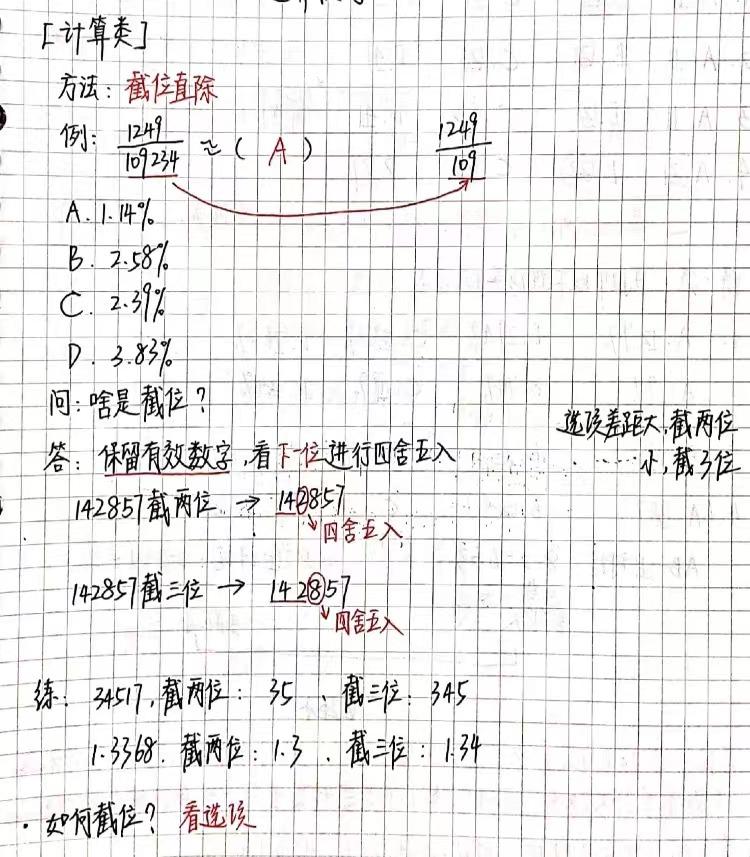 [计算类]
方法：截位直除
例：1249/109234 ≈（ A ） 1249/109
A. 1.14%
B. 2.58%
C. 2.39%
D. 3.83%
问：啥是截位？
选项差距大,截两位
答：保留有效数字,看下一位进行四舍五入
......小,截3位
142857截两位 → 142857
四舍五入
142857截三位 → 142857
四舍五入
练：34517,截两位：35、截三位：345
1.3368.截两位：1.3、截三位：1.34
·如何截位？看选项